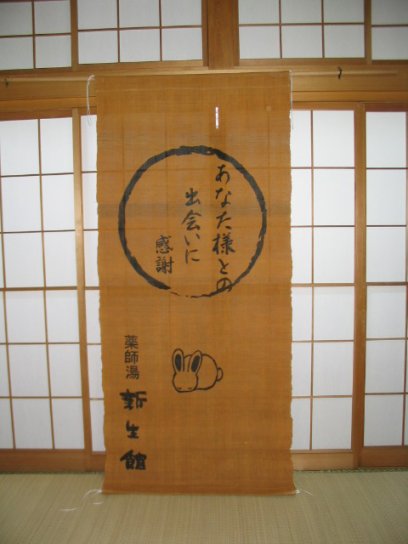 あなた様との
出会いに
感謝
薬師湯
新生館